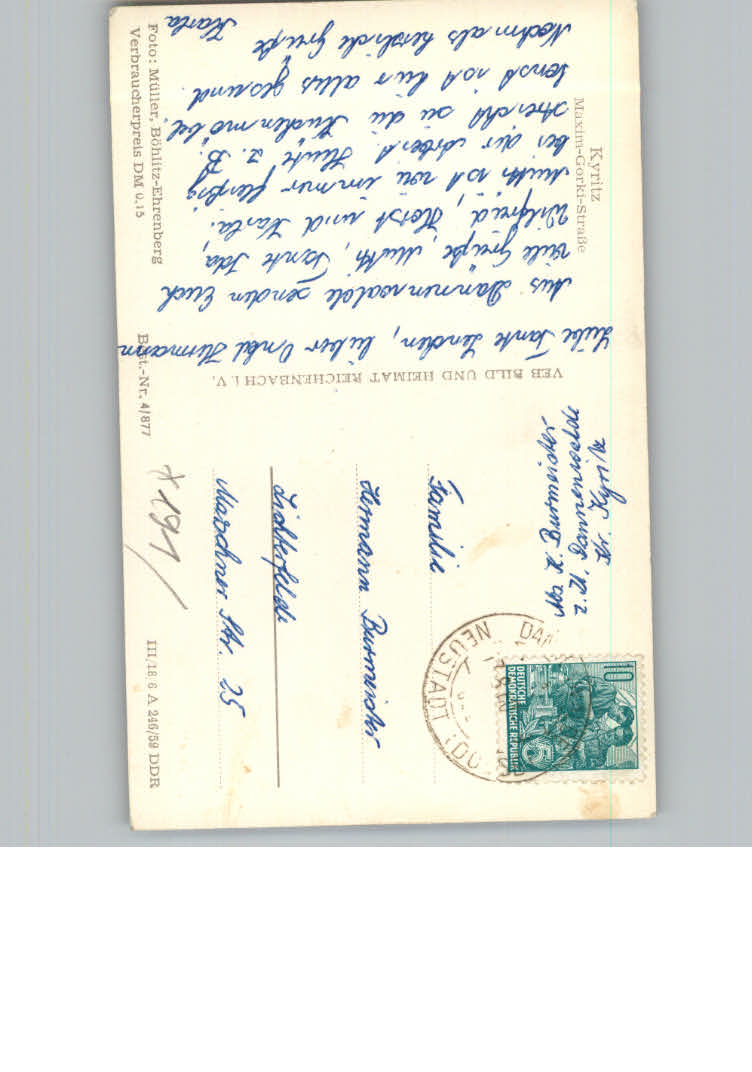 Kyritz
Maxim-Gorki-Straße
Liebe Tante Lenchen, lieber Onkel Hermann
Aus Dannenwalde senden Euch
viele Grüße, Mutti, Tante Ida,
Wilfried, Horst und Karla.
Mutti ist wie immer fleißig
bei der Arbeit. Heute z. B.
streicht sie die Küchenmöbel.
Sonst ist hier alles gesund.
Nochmals herzliche Grüße
Karla
Foto: Müller, Böhlitz-Ehrenberg
Verbraucherpreis DM 0,15
Best.-Nr. 4/877
VEB BILD UND HEIMAT REICHENBACH I. V.
K. Burmeister
z. Zt. Dannenwalde
Kr. Kyritz
Familie
Hermann Burmeister
Lichterfelde
Maschner Str. 25
* 191/
III/18/6 A 246/59 DDR
10
DEUTSCHE
DEMOKRATISCHE REPUBLIK
NEUSTADT (DOSSE)